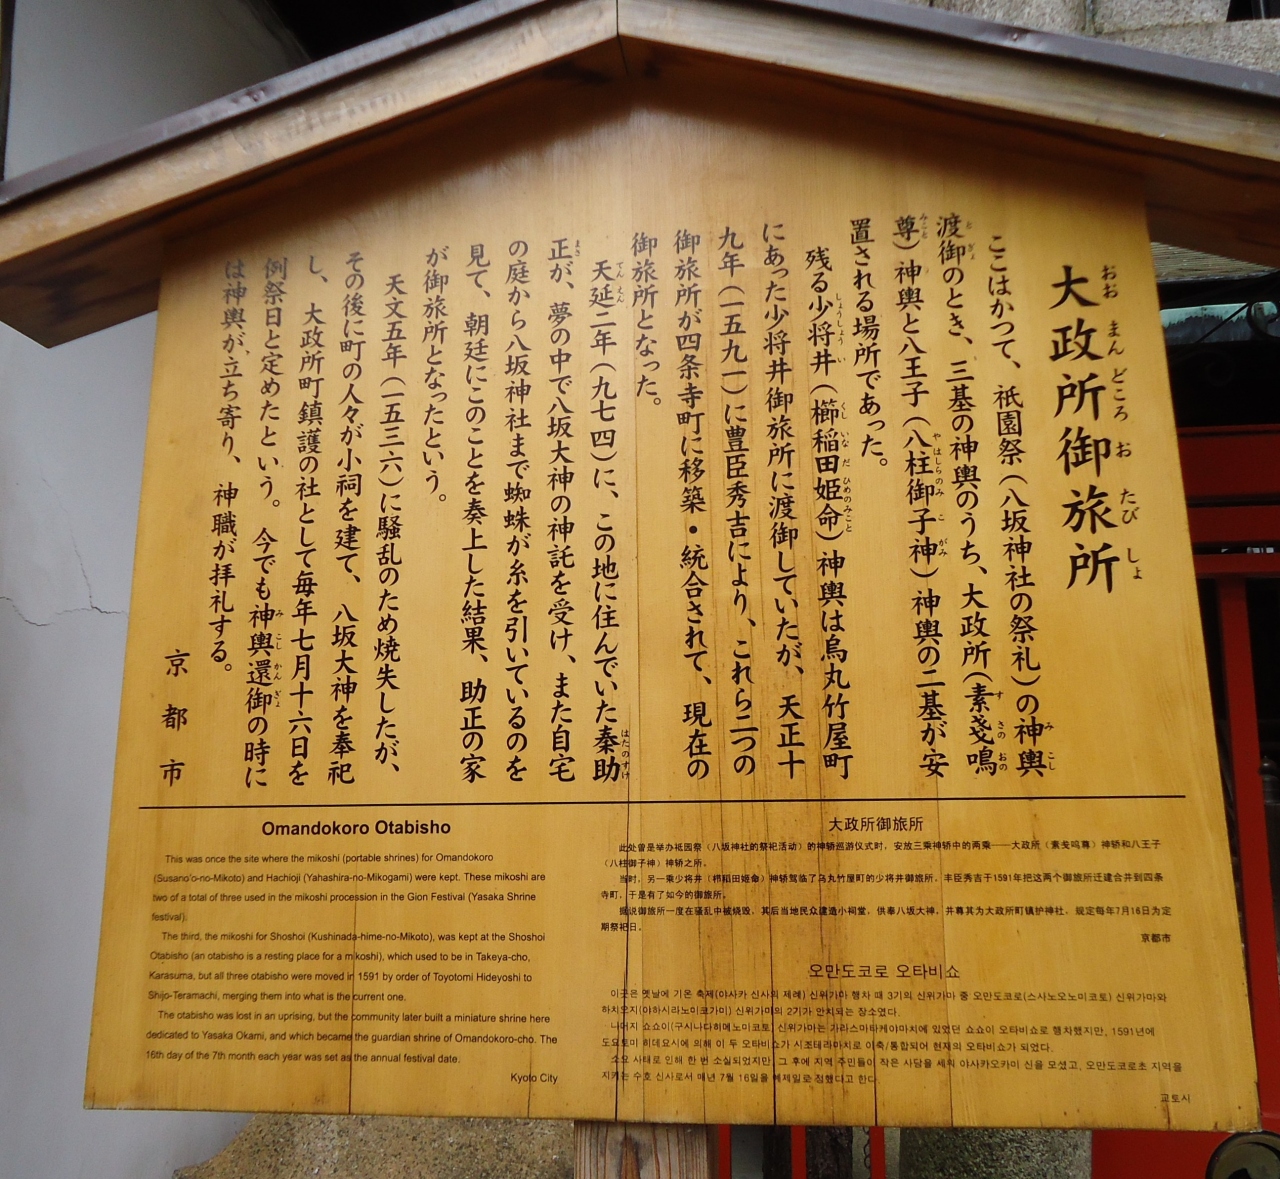 大政所御旅所
ここはかつて、祇園祭（八坂神社の祭礼）の神輿
渡御のとき、三基の神輿のうち、大政所（素戔嗚
尊）神輿と八王子（八柱御子神）神輿の二基が安
置される場所であった。
残る少将井（櫛稲田姫命）神輿は烏丸竹屋町
にあった少将井御旅所に渡御していたが、天正十
九年（一五九一）に豊臣秀吉により、これら二つの
御旅所が四条寺町に移築・統合されて、現在の
御旅所となった。
天延二年（九七四）に、この地に住んでいた秦助
正が、夢の中で八坂大神の神託を受け、また自宅
の庭から八坂神社まで蜘蛛が糸を引いているのを
見て、朝廷にこのことを奏上した結果、助正の家
が御旅所となったという。
天文五年（一五三六）に騒乱のため焼失したが、
その後に町の人々が小祠を建て、八坂大神を奉祀
し、大政所町鎮護の社として毎年七月十六日を
例祭日と定めたという。今でも神輿還御の時に
は神輿が立ち寄り、神職が拝礼する。
京都市
Omandokoro Otabisho
This was once the site where the mikoshi (portable shrines) for Omandokoro
(Susano'o-no-Mikoto) and Hachioji (Yahashira-no-Mikogami) were kept. These mikoshi are
two of a total of three used in the mikoshi procession in the Gion Festival (Yasaka Shrine
festival).
The third, the mikoshi for Shoshoi (Kushinada-hime-no-Mikoto), was kept at the Shoshoi
Otabisho (an otabisho is a resting place for a mikoshi), which used to be in Takeya-cho,
Karasuma, but all three otabisho were moved in 1591 by order of Toyotomi Hideyoshi to
Shijo-Teramachi, merging them into what is the current one.
The otabisho was lost in an uprising, but the community later built a miniature shrine here
dedicated to Yasaka Okami, and which became the guardian shrine of Omandokoro-cho. The
16th day of the 7th month each year was set as the annual festival date.
Kyoto City
大政所御旅所
此处曾是举办祗园祭（八坂神社的祭祀活动）的神轿巡游仪式时，安放三乘神轿中的两乘——大政所（素戋呜尊）神轿和八王子
（八柱御子神）神轿之所。
当时，另一乘少将井（栉稻田姬命）神轿驾临了乌丸竹屋町的少将井御旅所，丰臣秀吉于1591年把这两个御旅所迁建合并到四条
寺町，于是有了如今的御旅所。
据说御旅所一度在骚乱中被烧毁，其后当地民众建造小祠堂，供奉八坂大神，并尊其为大政所町镇护神社，规定每年7月16日为定
期祭祀日。
京都市
오만도코로 오타비쇼
이곳은 옛날에 기온 축제(야사카 신사의 제례) 신위가마 행차 때 3기의 신위가마 중 오만도코로(스사노오노미코토) 신위가마와
하치오지(야하시라노미코가미) 신위가마의 2기가 안치되는 장소였다.
나머지 쇼쇼이(구시나다히메노미코토) 신위가마는 가라스마타케야마치에 있었던 쇼쇼이 오타비쇼로 행차했지만, 1591년에
도요토미 히데요시에 의해 이 두 오타비쇼가 시조테라마치로 이축/통합되어 현재의 오타비쇼가 되었다.
소요 사태로 인해 한 번 소실되었지만, 그 후에 지역 주민들이 작은 사당을 세워 야사카오카미 신을 모셨고, 오만도코로초 지역을
지키는 수호 신사로서 매년 7월 16일을 예제일로 정했다고 한다.
교토시